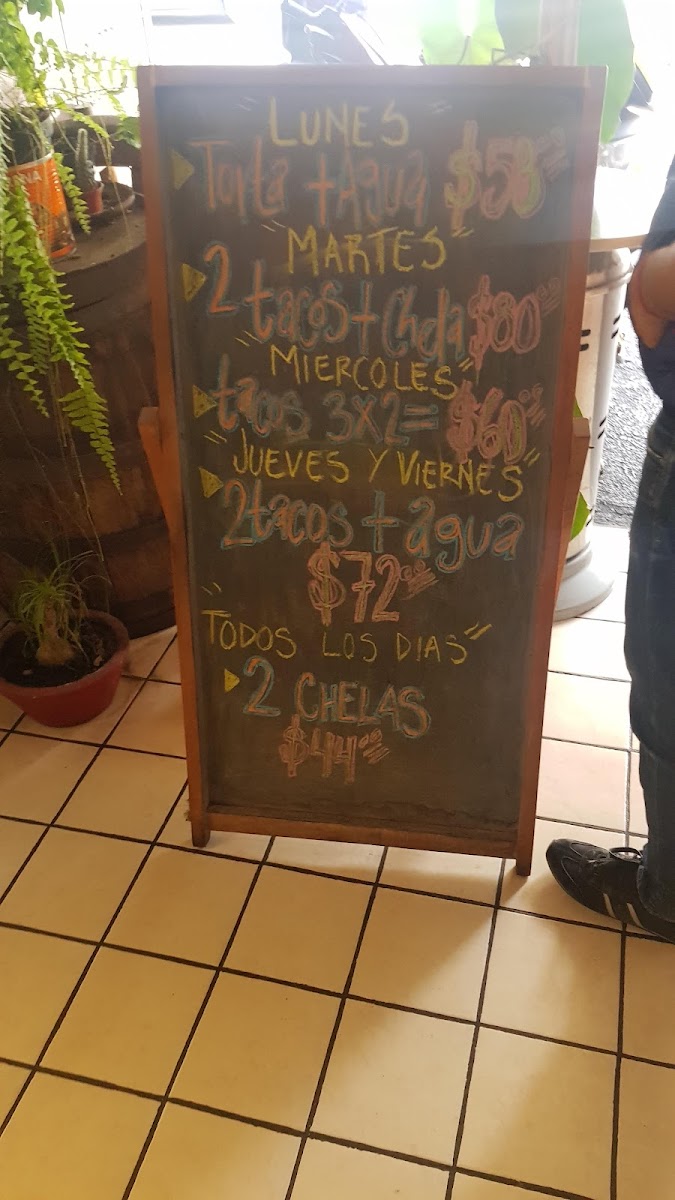 "LUNES"
Torta + Agua $58.00
"MARTES"
2 tacos + Chela $80.00
"MIERCOLES"
tacos 3x2= $60.00
"JUEVES Y VIERNES"
2 tacos + agua
$72.00
"TODOS LOS DIAS"
2 CHELAS
$44.00